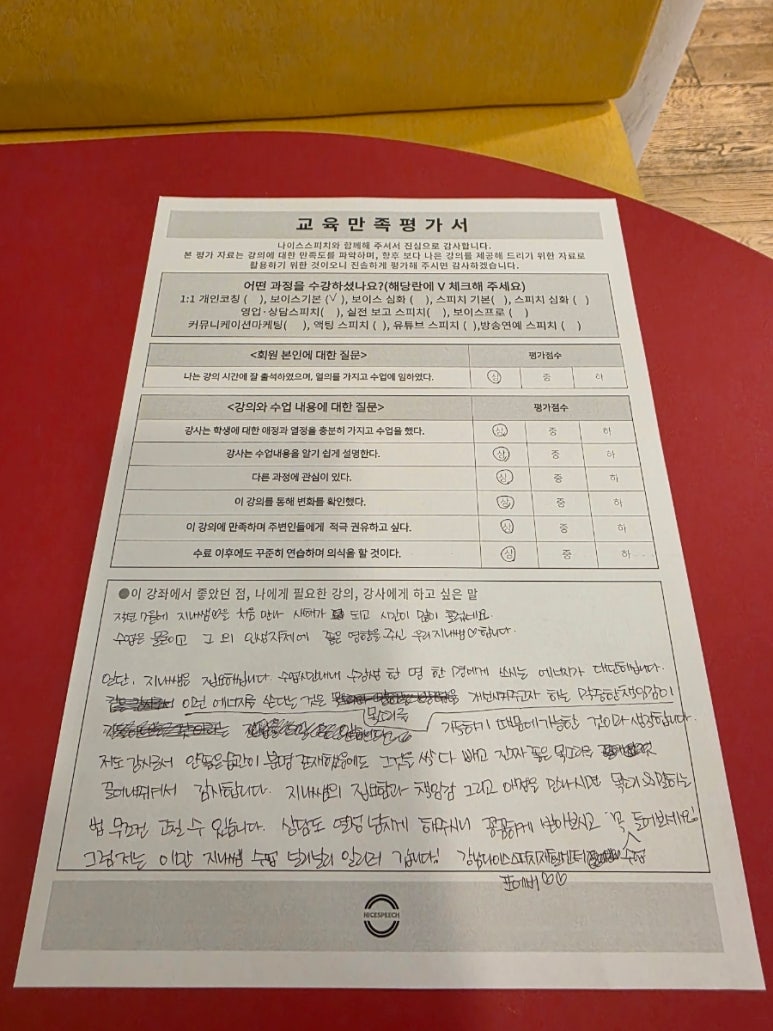 교육만족평가서
나이스스피치와 함께해 주셔서 진심으로 감사합니다.
본 평가 자료는 강의에 대한 만족도를 파악하며, 향후 보다 나은 강의를 제공해 드리기 위한 자료로
활용하기 위한 것이오니 진솔하게 평가해 주시면 감사하겠습니다.
어떤 과정을 수강하셨나요?(해당란에 V 체크해 주세요)
1:1 개인코칭 ( ), 보이스기본 (√), 보이스 심화 ( ), 스피치 기본( ), 스피치 심화 ( )
영업·상담스피치( ), 실전 보고 스피치( ), 보이스프로 ( )
커뮤니케이션마케팅( ), 액팅 스피치 ( ), 유튜브 스피치 ( ),방송연예 스피치 ( )
<회원 본인에 대한 질문> 평가점수
나는 강의 시간에 잘 출석하였으며, 열의를 가지고 수업에 임하였다. 상 중 하
<강의와 수업 내용에 대한 질문> 평가점수
강사는 학생에 대한 애정과 열정을 충분히 가지고 수업을 했다. 상 중 하
강사는 수업내용을 알기 쉽게 설명한다. 상 중 하
다른 과정에 관심이 있다. 상 중 하
이 강의를 통해 변화를 확인했다. 상 중 하
이 강의에 만족하며 주변인들에게 적극 권유하고 싶다. 상 중 하
수료 이후에도 꾸준히 연습하며 의식을 할 것이다. 상 중 하
●이 강좌에서 좋았던 점, 나에게 필요한 강의, 강사에게 하고 싶은 말
작년 7월에 지내쌤♡을 처음 만나 새해가 되고 시간이 많이 흘렀네요.
수업은 물론이고 그 외 인생자체에 좋은 영향을 주신 우리지내쌤♡합니다.
일단, 지내쌤은 집요해집니다. 수업시간내내 수강생 한 명 한 명에게 쓰시는 에너지가 대단해집니다.
이런 에너지를 쓴다는 것은 목소리를 개선시켜주고자 하는 막중한책임감이
기능하기 때문에 가능한 것이라 생각합니다.
저도 강사로서 안좋은습관이 분명 존재했음에도 그것을 싹 다 빼고 진짜 좋은 목소리를
끌어내주셔서 감사합니다. 지내쌤의 집요함과 책임감 그리고 애정을 만나시면 목소리와 말하는
법 무조건 고칠 수 있습니다. 상담도 열정 넘치게 해주시니 꼼꼼하게 받아보시고 꼭 들어보세요!
그럼 저는 이만 지내쌤 수업 널리널리 알리러 갑니다! 강남나이스스피치 수업
포에버♡♡
NICESPEECH